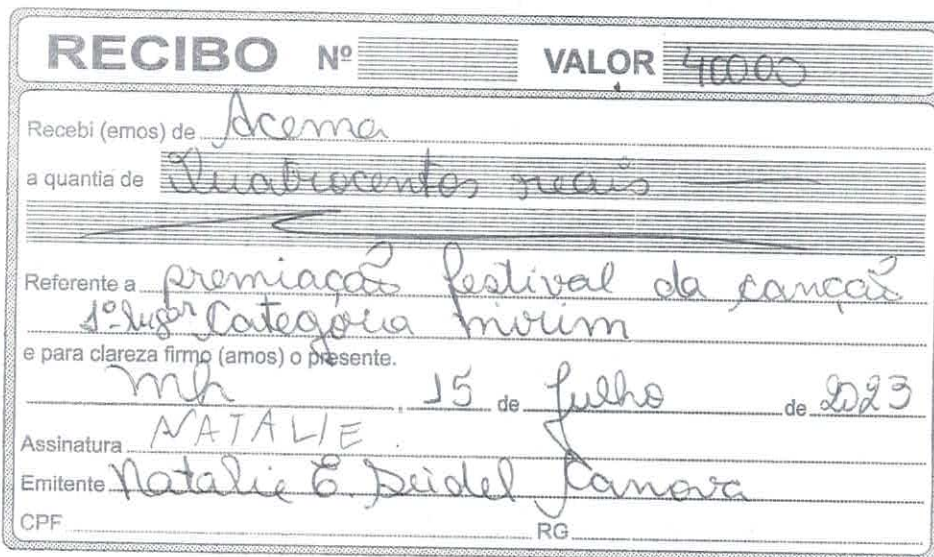 RECIBO Nº VALOR 400,00
Recebi (emos) de Acema
a quantia de Quatrocentos reais
Referente a premiação festival da canção
1º lugar Categoria mirim
e para clareza firmo (amos) o presente.
mh, 15 de julho de 2023
Assinatura NATALIE.
Emitente Natalie E. Seidel Canova
CPF RG